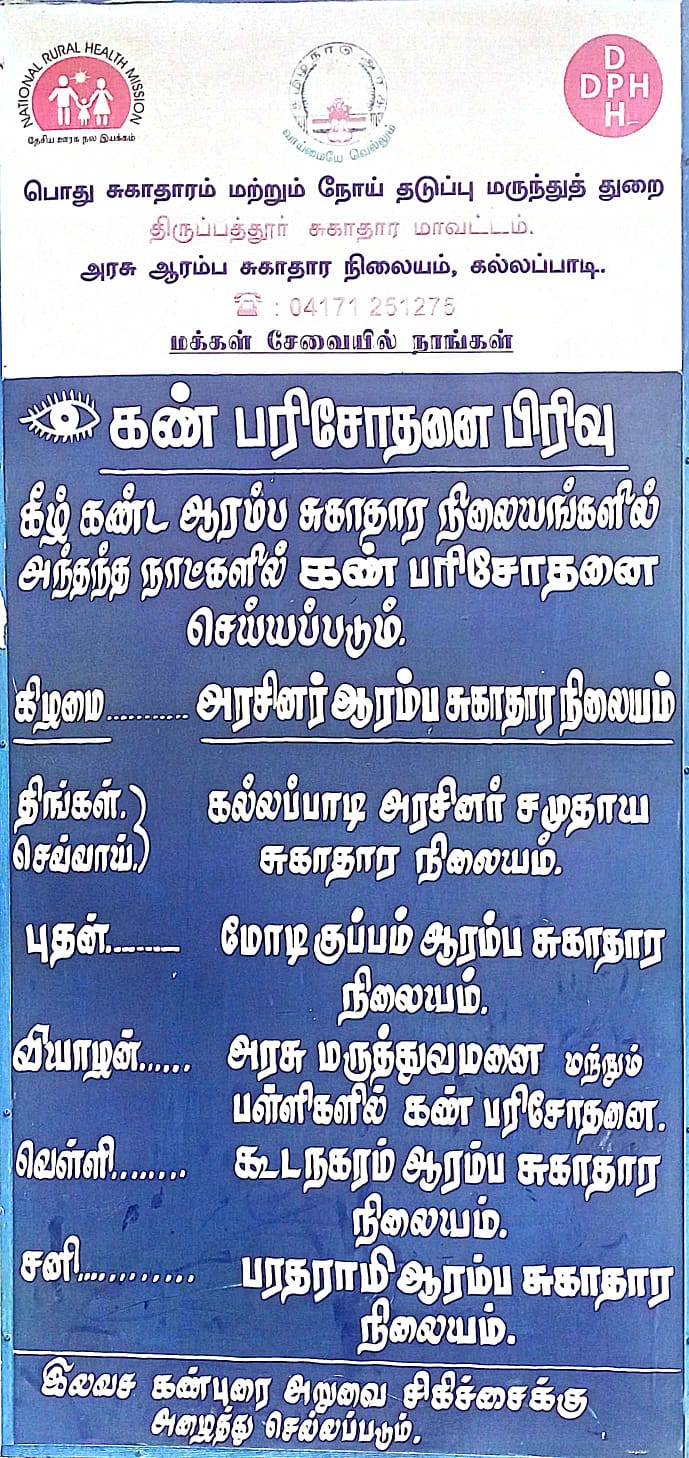 NATIONAL RURAL HEALTH MISSION
தேசிய ஊரக நல இயக்கம்
தமிழ்நாடு அரசு
வாய்மையே வெல்லும்
D
DPH
H
பொது சுகாதாரம் மற்றும் நோய் தடுப்பு மருந்துத் துறை
திருப்பத்தூர் சுகாதார மாவட்டம்.
அரசு ஆரம்ப சுகாதார நிலையம், கல்லப்பாடி.
☎ : 04171 251275
மக்கள் சேவையில் நாங்கள்
கண் பரிசோதனை பிரிவு
கீழ் கண்ட ஆரம்ப சுகாதார நிலையங்களில்
அந்தந்த நாட்களில் கண் பரிசோதனை
செய்யப்படும்.
கிழமை........... அரசினர் ஆரம்ப சுகாதார நிலையம்
திங்கள். } கல்லப்பாடி அரசினர் சமுதாய
செவ்வாய். } சுகாதார நிலையம்.
புதன்......... மோடி குப்பம் ஆரம்ப சுகாதார
நிலையம்.
வியாழன்...... அரசு மருத்துவமனை மற்றும்
பள்ளிகளில் கண் பரிசோதனை.
வெள்ளி........ கூடநகரம் ஆரம்ப சுகாதார
நிலையம்.
சனி............ பரதராமி ஆரம்ப சுகாதார
நிலையம்.
இலவச கண்புரை அறுவை சிகிச்சைக்கு
அழைத்து செல்லப்படும்.